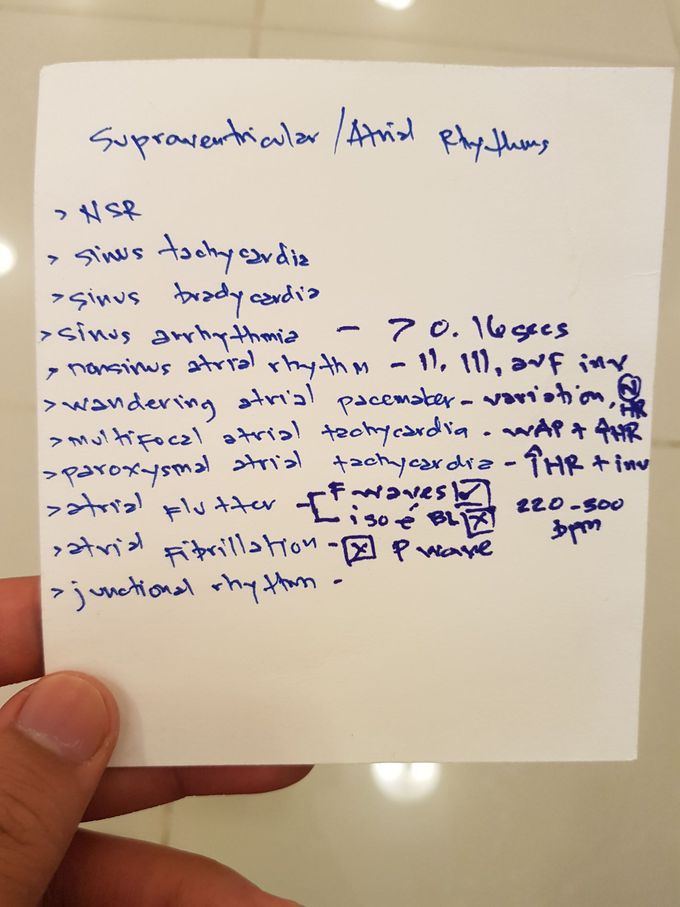 Supraventricular/Atrial Rhythms
> NSR
> sinus tachycardia
> sinus bradycardia
> sinus arrhythmia - > 0.16 secs
> nonsinus atrial rhythm - II, III, avF inv
> wandering atrial pacemaker - variation, N HR
> multifocal atrial tachycardia - WAP + ↑HR
> paroxysmal atrial tachycardia - ↑HR + inv
> atrial flutter - F waves ✓
isoé BL x 220-300 bpm
> atrial fibrillation - x P wave
> junctional rhythm -